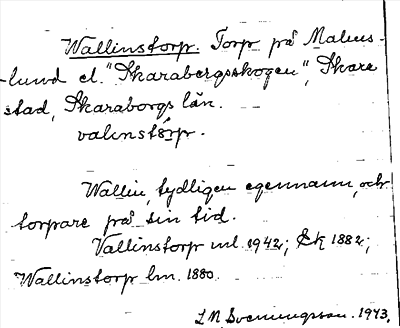 Wallinstorp. Torp på Malms-
lund el. "Skarabergsskogen", Skare
stad, Skaraborgs län.
valinstórp.
Wallin, tydligen egennamn, och
torpare på sin tid.
Vallinstorp ml. 1942; Ek 1882;
Wallinstorp lm. 1880.
L N Svenungsson. 1943.